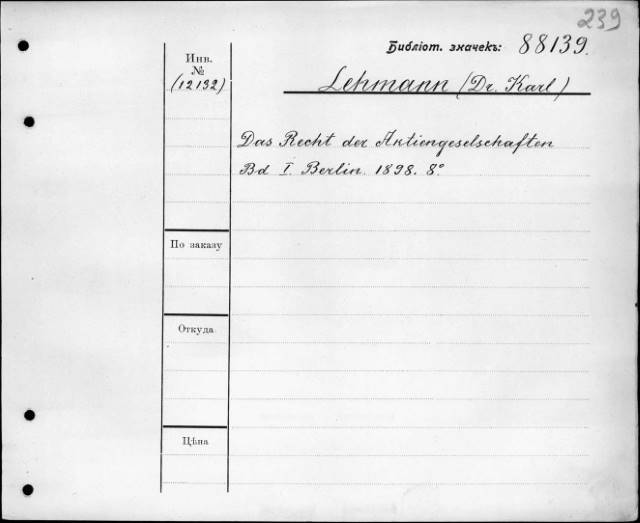 239
Библіот. значекъ: 88139.
Инв.
№
(12132)
Lehmann (Dr. Karl)
Das Recht der Aktiengeselschaften
Bd I. Berlin. 1898. 8°
По заказу
Откуда
Цѣна